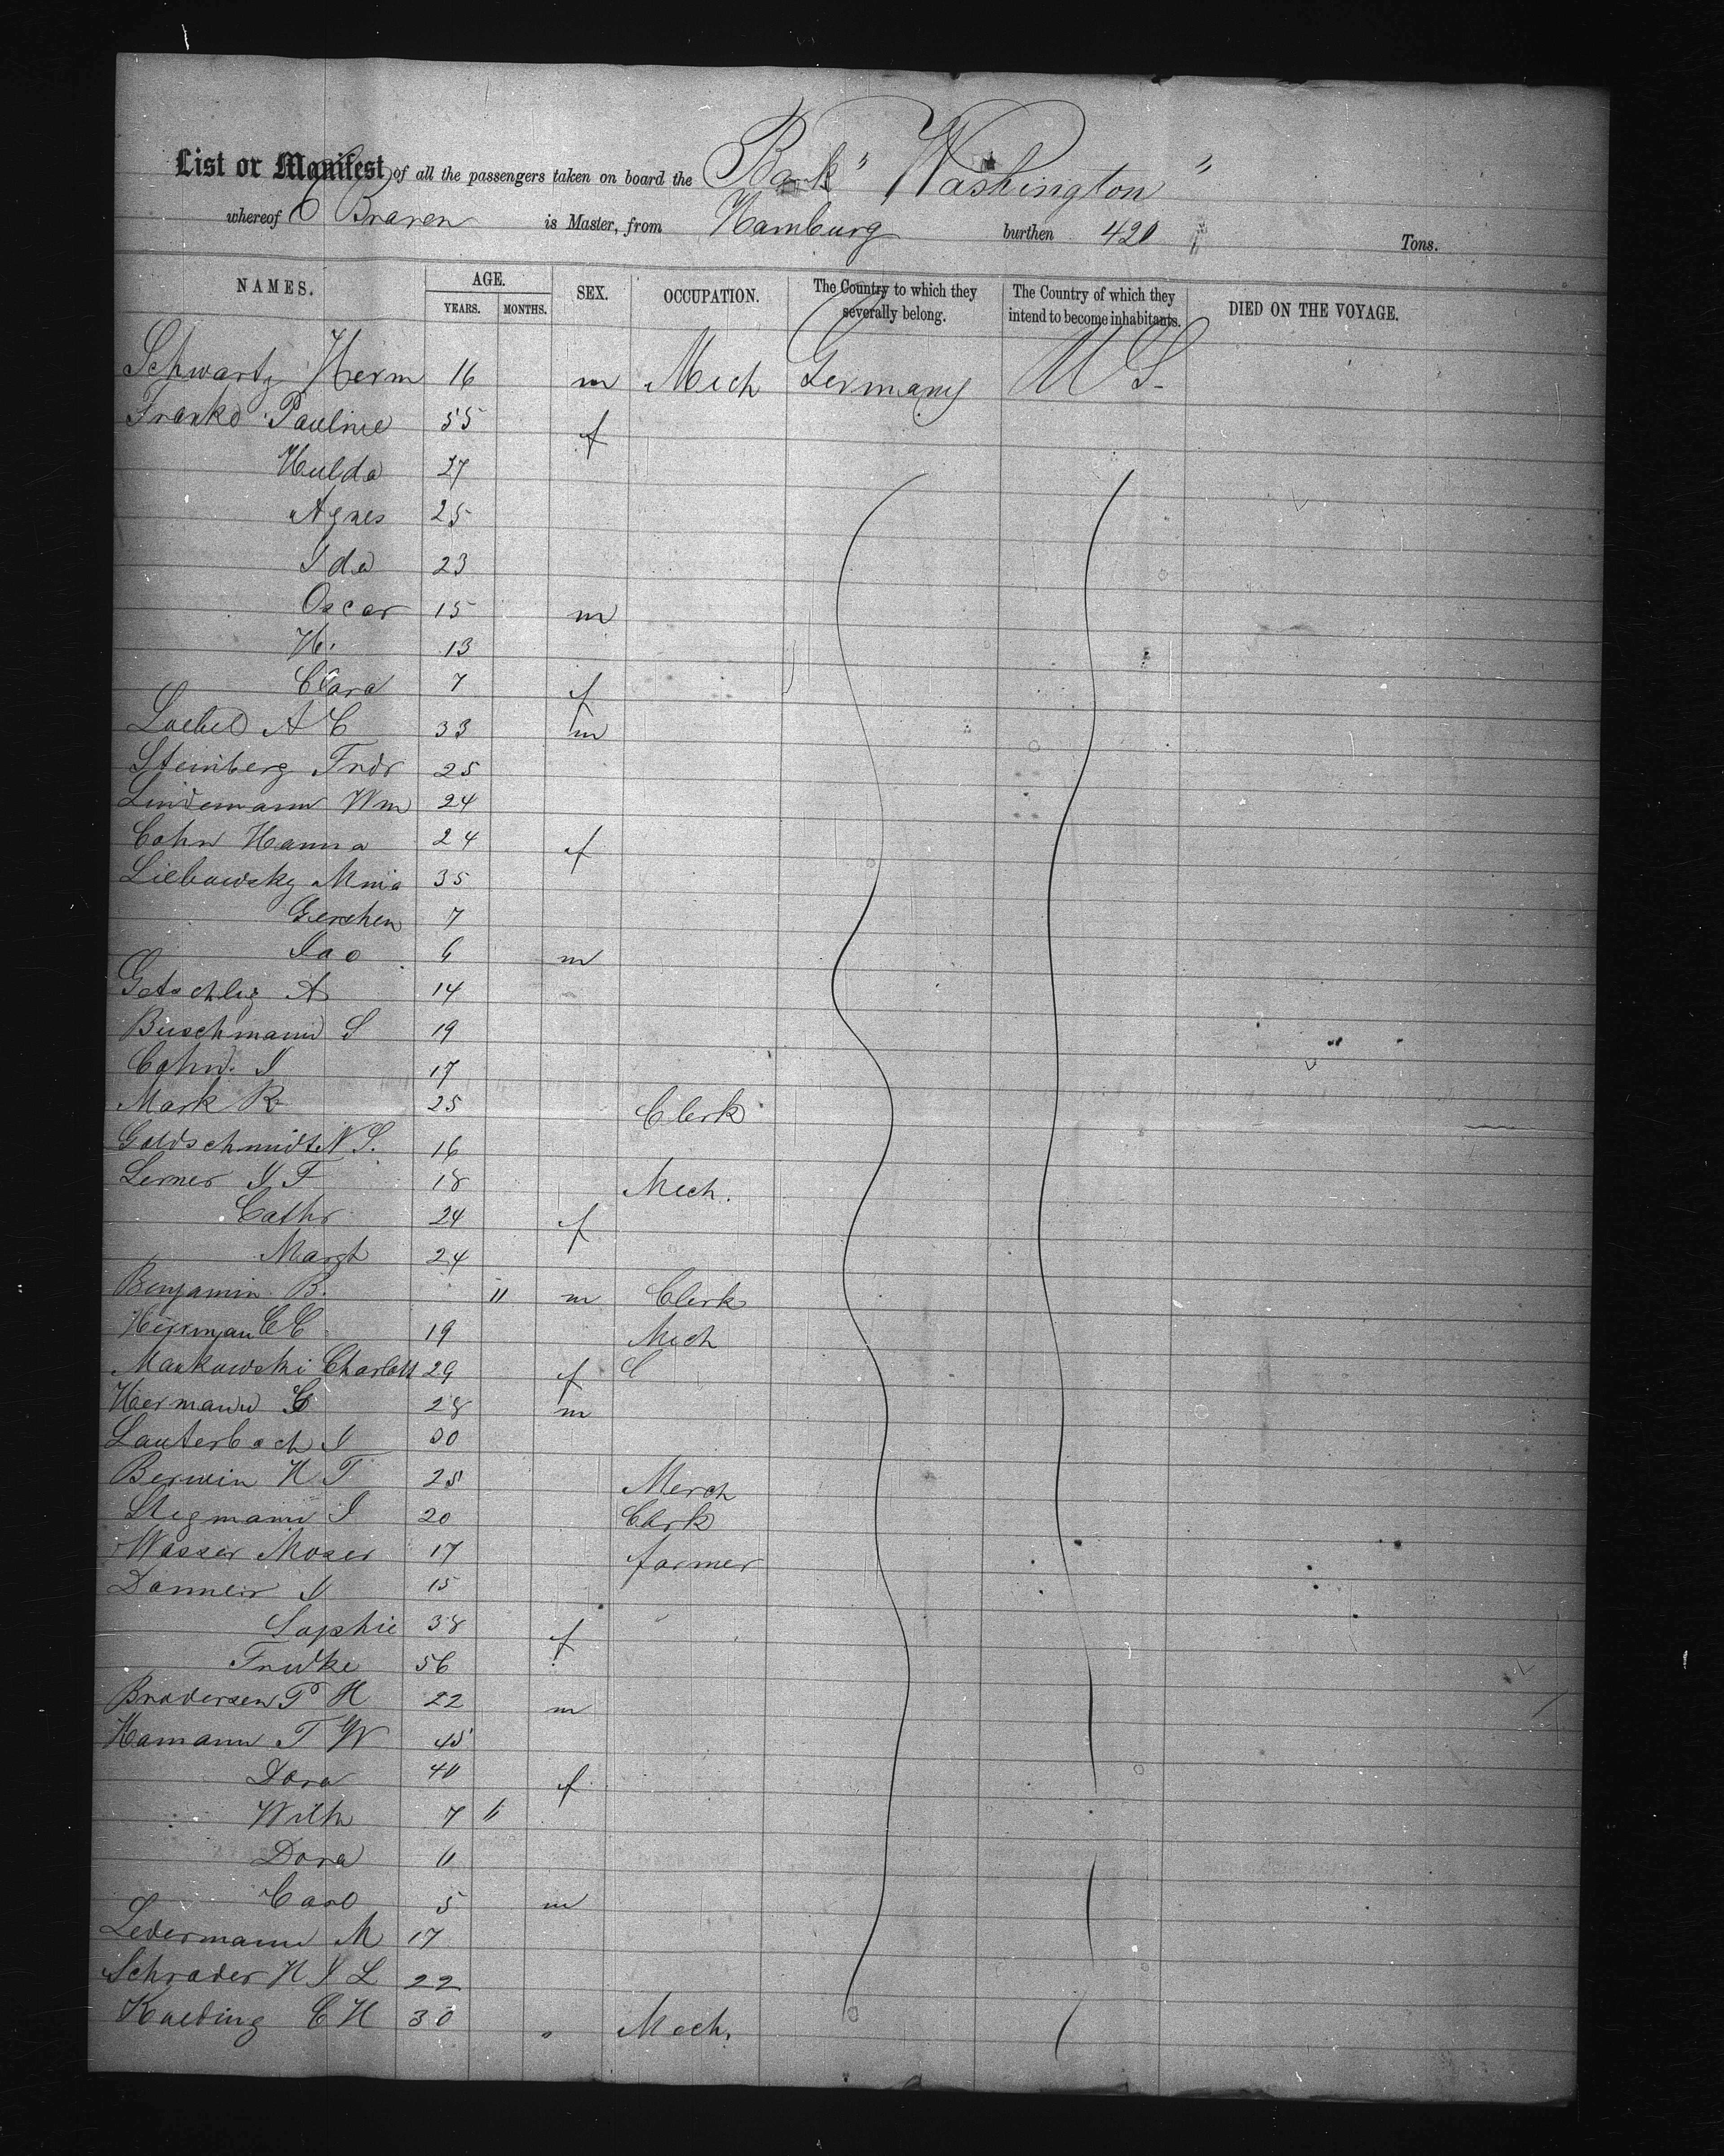 List or Manifest of all the passengers taken on board the Bark "Washington"
whereof C Braren is Master, from Hamburg burthen 420 Tons.
NAMES. AGE. YEARS. MONTHS. SEX. OCCUPATION. The Country to which they severally belong. The Country of which they intend to become inhabitants. DIED ON THE VOYAGE.
Schwartz Herm 16 m Mech Germany U S
Franko Pauline 55 f
Hulda 27
Agnes 25
Ida 23
Oscar 15 m
H. 13
Clara 7 f
Loebel A C 33 m
Steinberg Fridr 25
Lindemann Wm 24
Cohn Hanna 24 f
Liebowsky Mnia 35
Gerschen 7
6 m
A 14
Buschmann S 19
Cohn. I 17
Mark R 25 Clerk
Goldschmidt N S. 16
Lerner I F 18 Mech.
Cathr 24 f
Margt 24
Benjamin B. 11 m Clerk
C C 19 Mech
Mankowski Charlott 29 f
Hermann G 28 m
Lauterbach I 30
Berwin H T 25 Merch
Stegmann I 20 Clerk
Wasser Moser 17 farmer
I 15
Sophie 38 f
56
Brodersen P H 22 m
Hamann T W 45
Dora 40 f
Wilh 7 "
Dora 11
Carl 5 m
Ledermann M 17
Schrader H I L 22
Kaeding C H 30 " Mech.